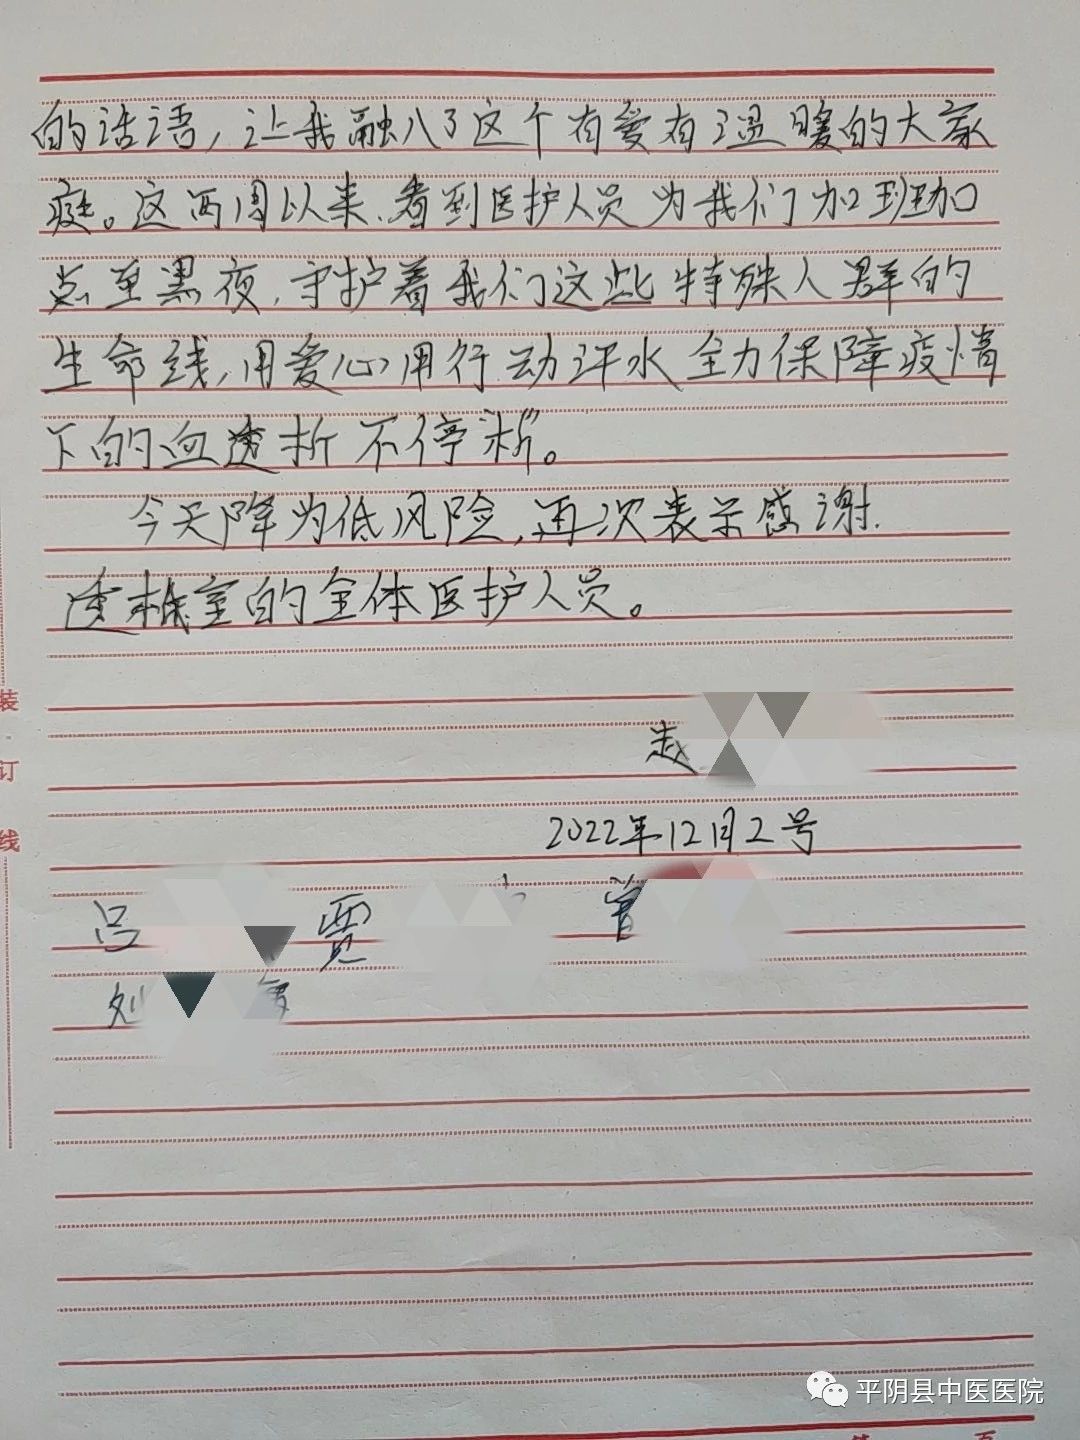 的话语，让我融入了这个有爱有温暖的大家
庭。这两周以来、看到医护人员为我们加班加
点至黑夜，守护着我们这些特殊人群的
生命线，用爱心用行动汗水全力保障疫情
下的血透析不停“析”。
今天降为低风险，再次表示感谢.
透析室的全体医护人员。
赵
2022年12月2号
吕 贾 曾
刘
装
订
线
平阴县中医医院